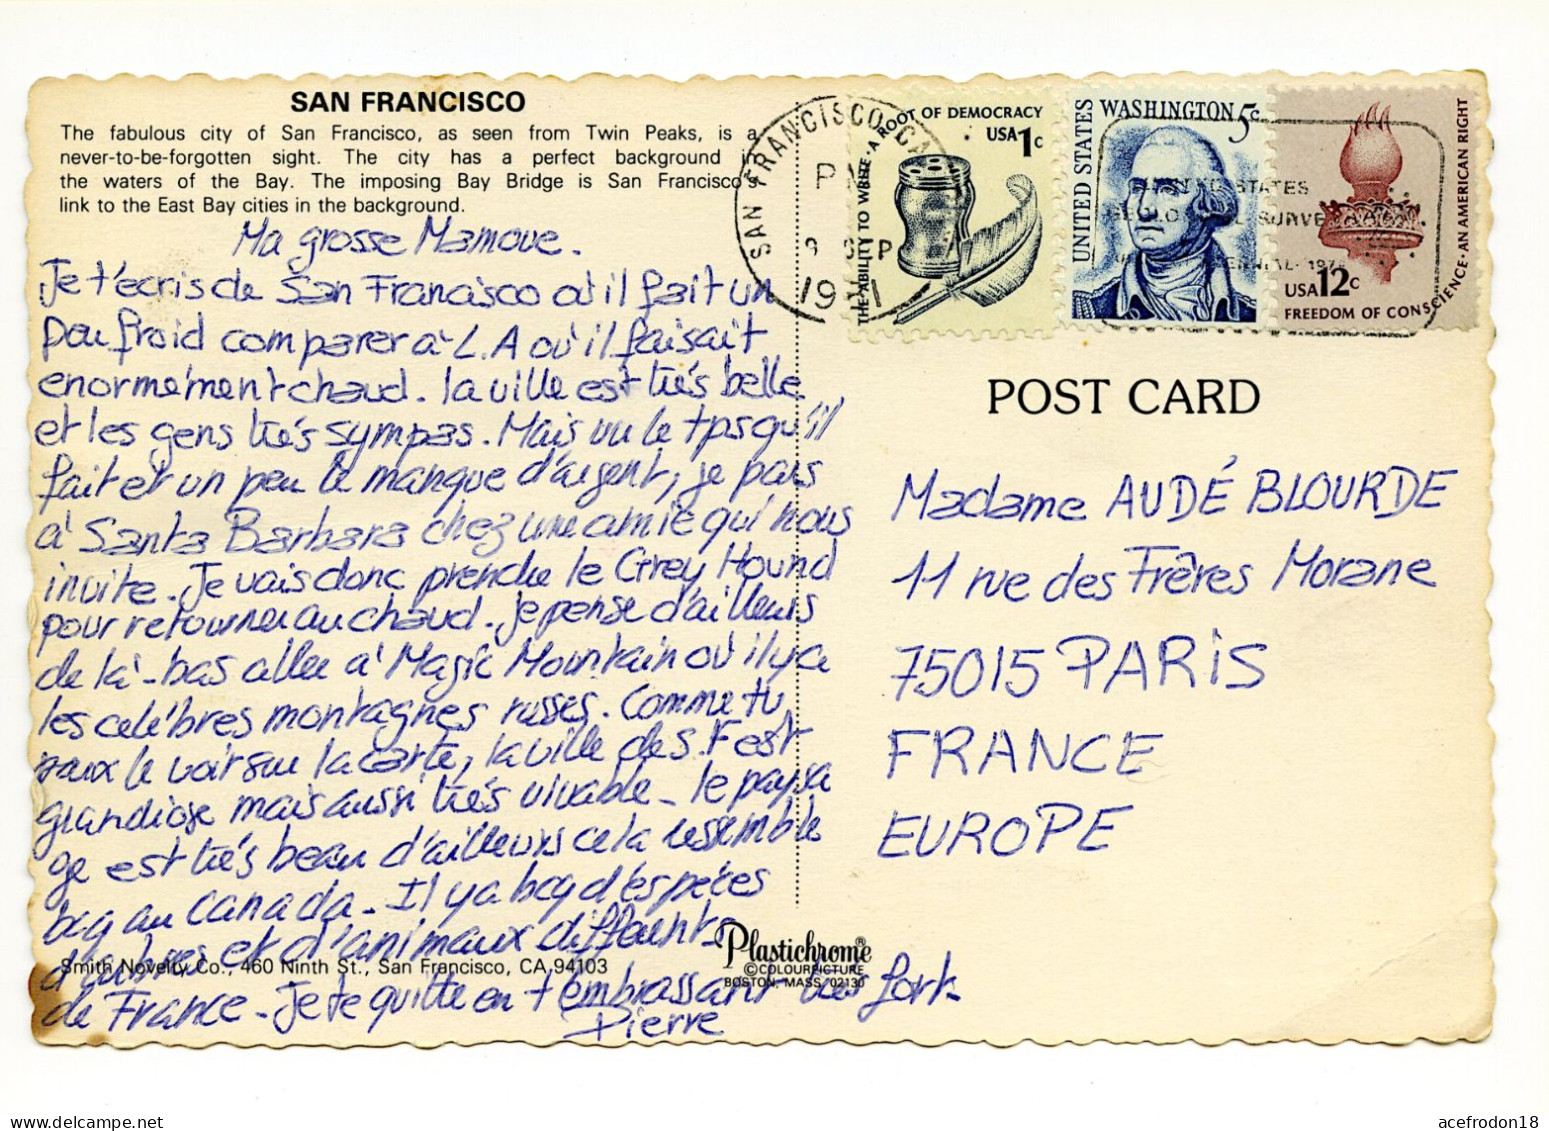 SAN FRANCISCO
The fabulous city of San Francisco, as seen from Twin Peaks, is a
never-to-be-forgotten sight. The city has a perfect background in
the waters of the Bay. The imposing Bay Bridge is San Francisco's
link to the East Bay cities in the background.
Ma grosse Mamoue.
Je t'écris de San Francisco où il fait un
peu froid comparer à L.A où il faisait
enormément chaud. la ville est très belle
et les gens très sympas. Mais vu le tps qu'il
fait et un peu le manque d'argent, je pars
à Santa Barbara chez une amie qui nous
invite. Je vais donc prendre le Grey Hound
pour retourner au chaud. Je pense d'ailleurs
de là-bas aller à Magic Mountain où il y a
les celèbres montagnes russes. Comme tu
peux le voir sur la carte, la ville de S.F est
grandiose mais aussi très vivable. le paysa
ge est très beau d'ailleurs cela ressemble
bcq au CANADA. Il y a bcq d'espèces
d'arbres et d'animaux différents
de France. Je te quitte en t'embrassant très fort.
Pierre
Smith Novelty Co., 460 Ninth St., San Francisco, CA 94103
Plastichrome®
©COLOURPICTURE
BOSTON, MASS. 02130
SAN FRANCISCO CA
PM
SEP
THE ABILITY TO WRITE · A ROOT OF DEMOCRACY
USA 1c
UNITED STATES
WASHINGTON 5c
UNITED STATES
GEOLOGICAL SURVEY
USA 12c
FREEDOM OF CONSCIENCE · AN AMERICAN RIGHT
POST CARD
Madame AUDÉ BLOURDE
11 rue des Frères Morane
75015 PARIS
FRANCE
EUROPE
acefrodon18